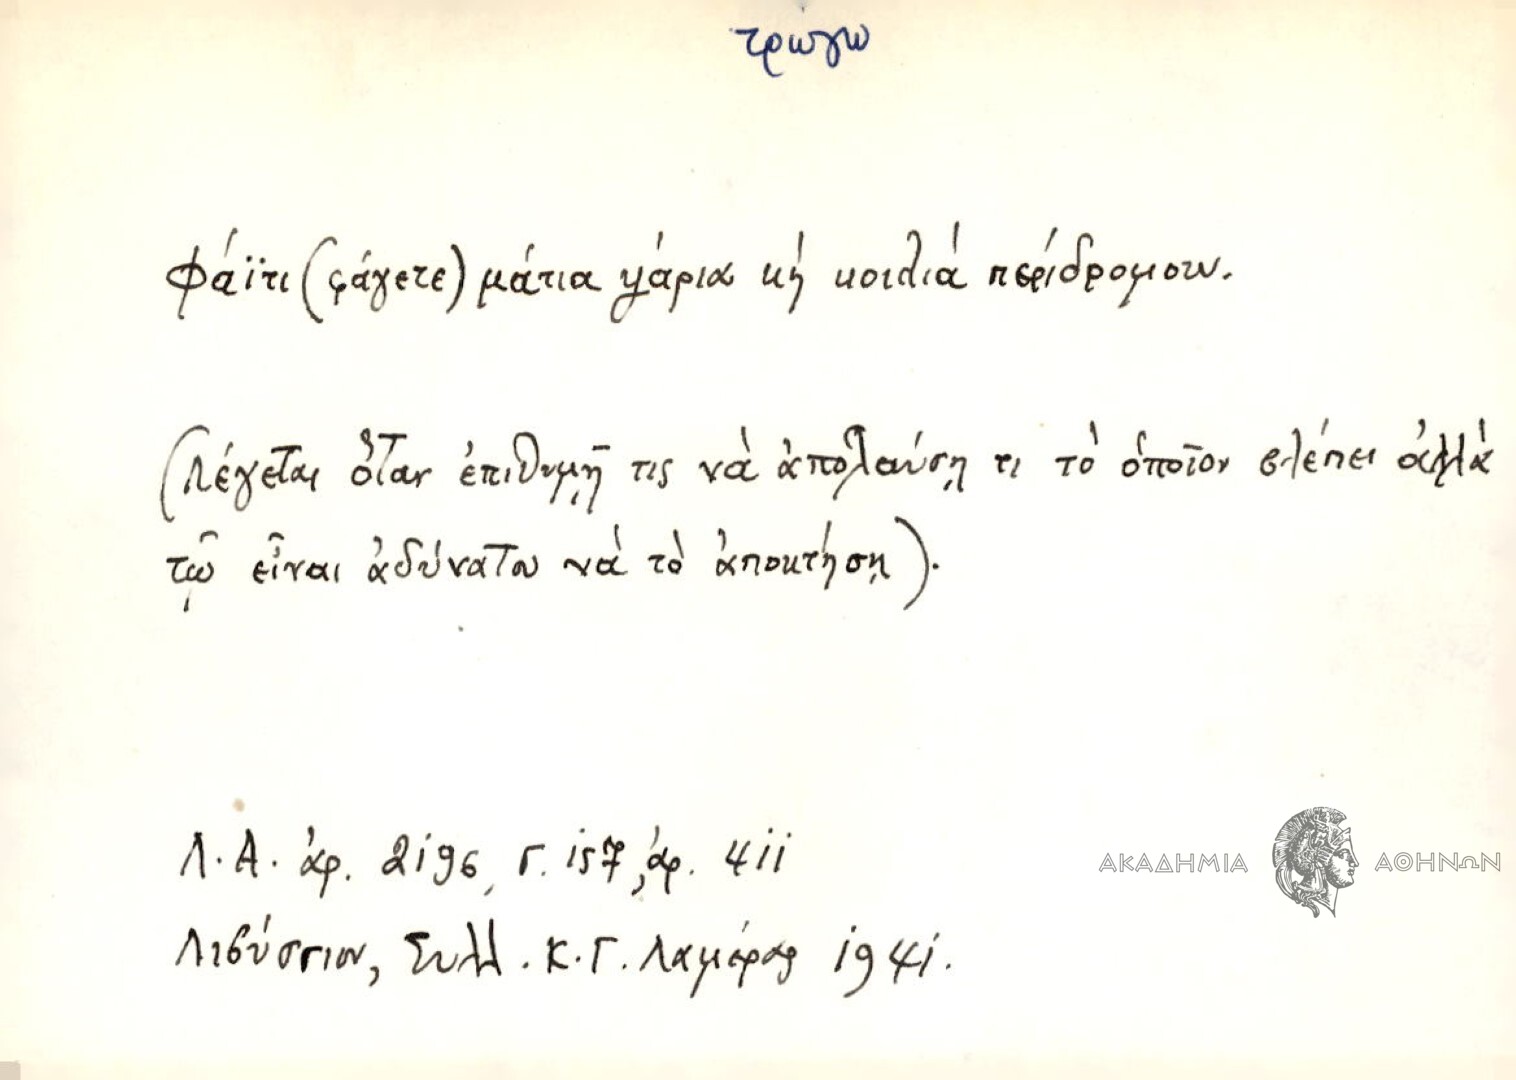 τρώγω
Φάϊτι (φάγετε) μάτια ψάρια κή κοιλιά περίδρομου.
(Λέγεται ὅταν ἐπιθυμῇ τις νὰ ἀπολαύσῃ τι τὸ ὁποῖον βλέπει ἀλλὰ
τῷ εἶναι ἀδύνατον νὰ τὸ ἀποκτήσῃ).
Λ.Α. ἀρ. 2196, Γ. 157, ἀρ. 411
Λιβύσσιον, Συλλ. Κ.Γ. Λαμέρας 1941.
ΑΚΑΔΗΜΙΑ ΑΘΗΝΩΝ